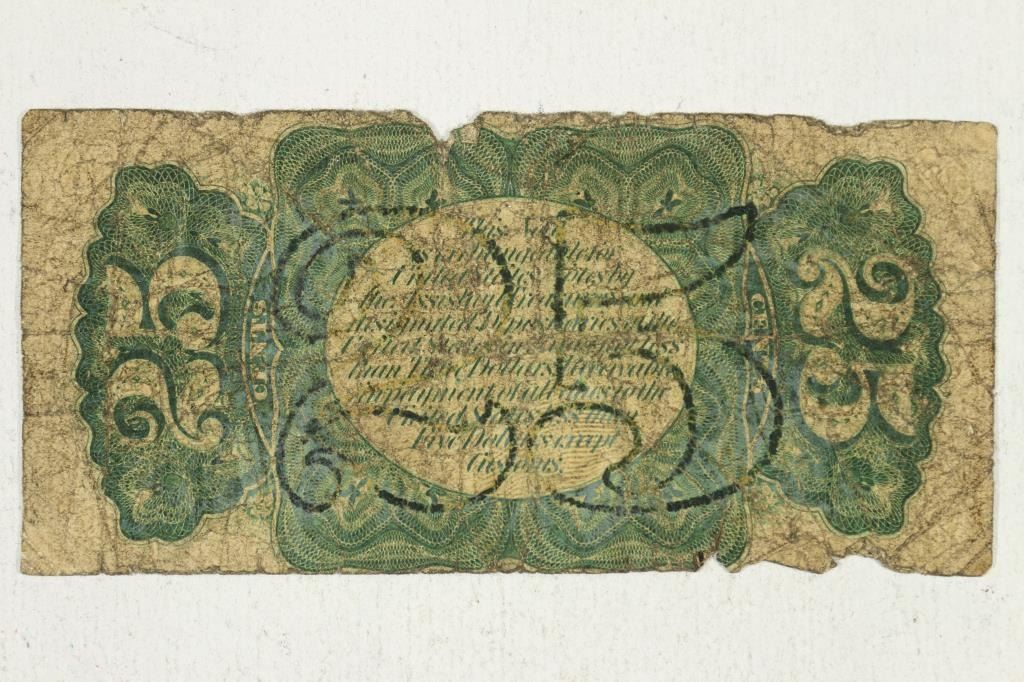 25
CENTS
This Note
is exchangeable for
United States Notes by
the Assistant Treasurers and
designated Depositaries of the
United States in sums not less
than Three Dollars. Receivable
in payment of all dues to the
United States less than
Five Dollars except
Customs.
CENTS
25
25